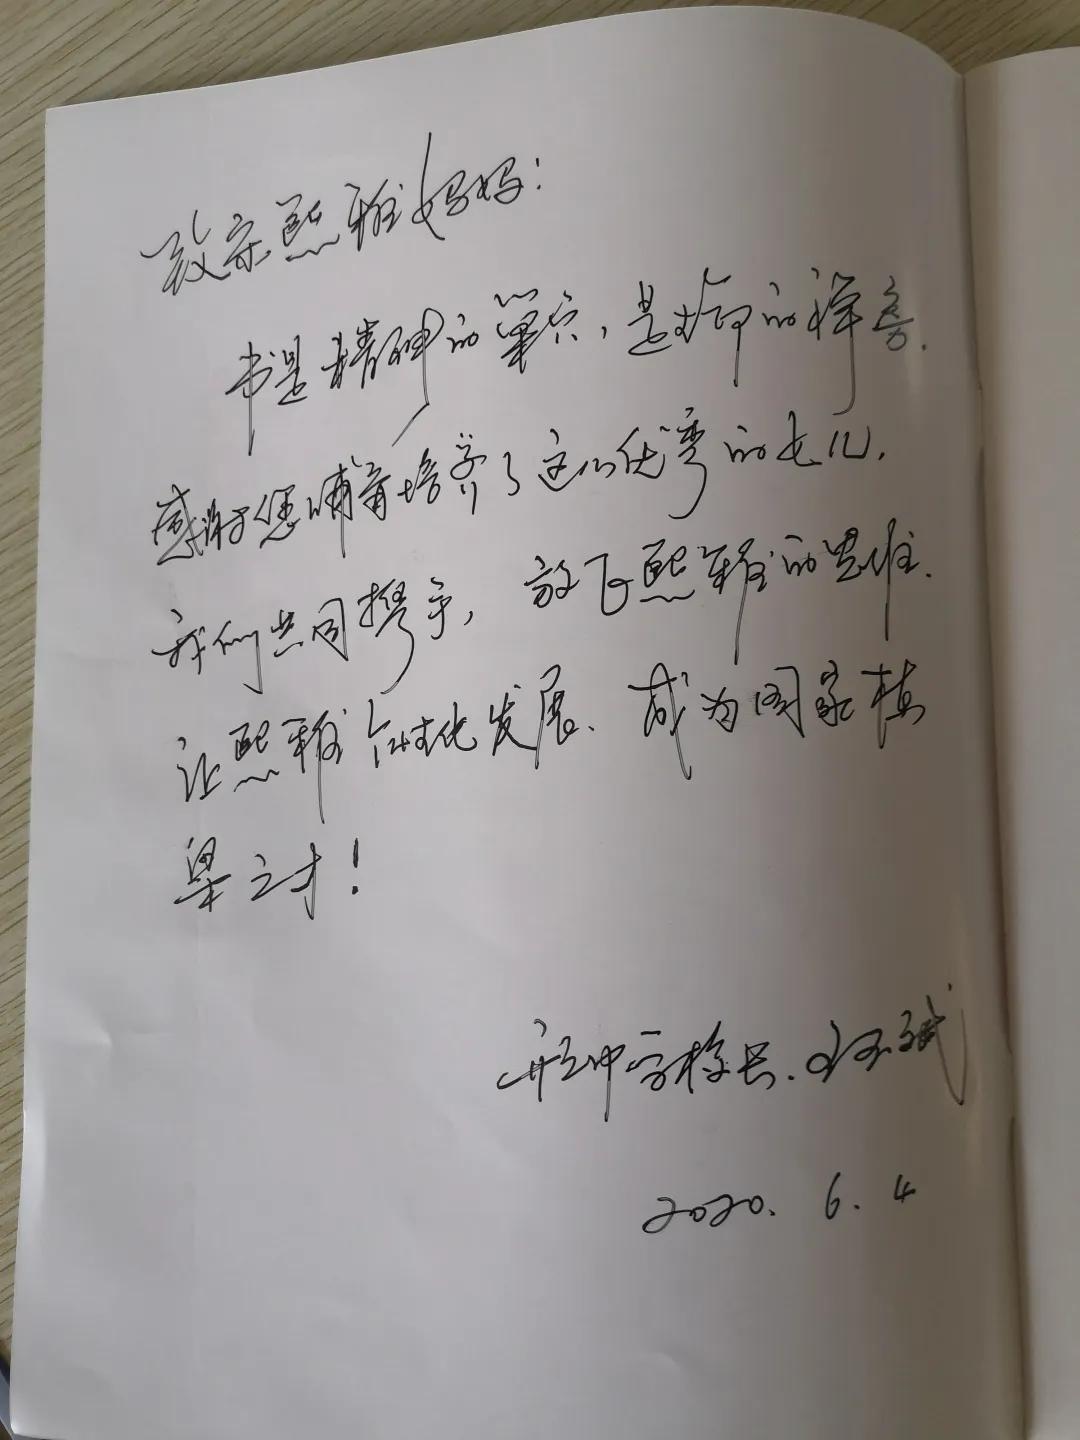 致宗熙雅妈妈：
书是精神的巢穴，是生命的禅房.
感谢您哺育培养了这么优秀的女儿.
我们共同携手，放飞熙雅的思维.
让熙雅个性化发展、成为国家栋
梁之才！
中学校长.
2020. 6. 4